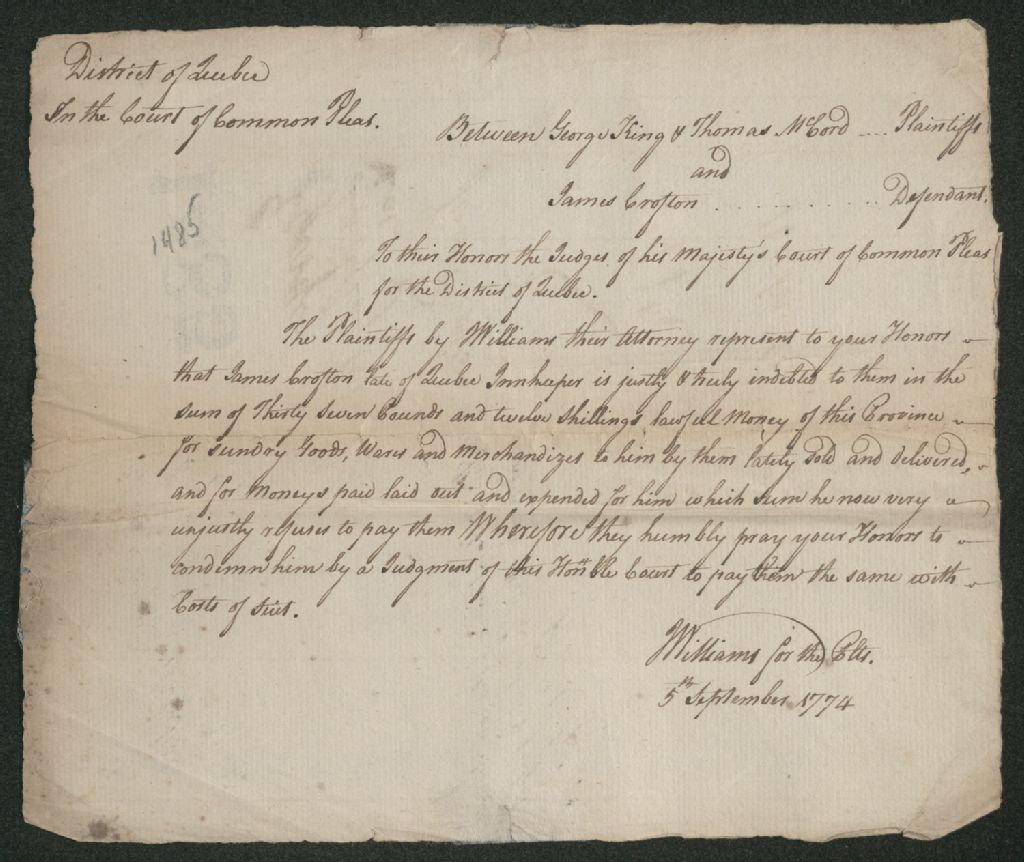 District of Quebec
In the Court of Common Pleas.
Between George King & Thomas McCord .... Plaintiffs
and
James Crofton . . . . . . . . . . . Defendant.
1485
To their Honors the Judges of his Majesty's Court of Common Pleas
for the District of Quebec.
The Plaintiffs by Williams their Attorney represent to your Honors
that James Crofton late of Quebec Innkeeper is justly & truly indebted to them in the
sum of Thirty seven Pounds and twelve shillings lawful Money of this Province
for sundry Goods, Wares and Merchandizes to him by them lately sold and delivered,
and for Moneys paid laid out and expended for him which sum he now very
unjustly refuses to pay them Wherefore they humbly pray your Honors to
condemn him by a Judgment of this Honble Court to pay them the same with
Costs of suit.
Williams for the Plts.
5th September 1774